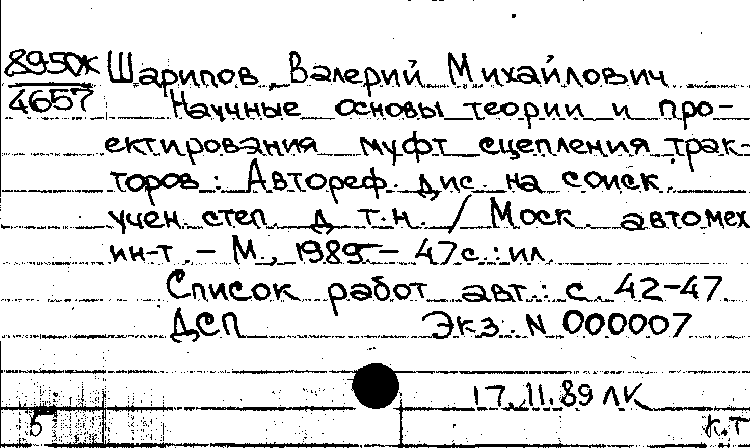 8950К Шарипов, Валерий Михайлович
4657 Научные основы теории и про-
ектирования муфт сцепления трак-
торов : Автореф. дис. на соиск.
учен. степ. д. т.н. / Моск. автомех.
ин-т. – М., 1989 – 47 с. : ил.
Список работ авт.: с. 42–47
ДСП Экз. N 000007
17.11.89 ЛК
5 К.Т